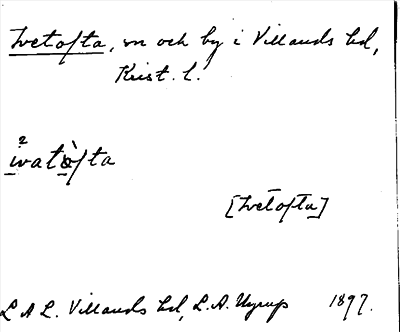 Ivetofta, sn och by i Villands hd,
Krist. l.
2
ivatòfta
[Ivetofta]
L A L. Villands hd, L.A. Ugrup 1897.